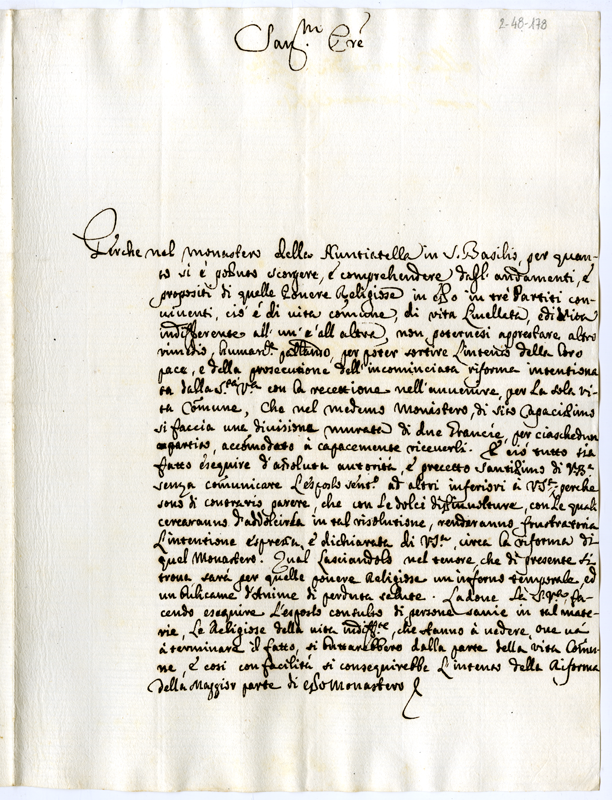 2-48-178
San.mo Pre
Perche nel monastero della Nuntiatella in S. Basilio, per quan-
to si è potuto scorgere, e comprehendere dagl' andamenti, e
propositi di quelle povere Religiose in esso in trè Partiti con-
viventi, cio è di vita comune, di vita Puelleta, e di vita
indifferente all' un' e all' altra, non potervesi apprestare altro
rimedio, human.te parlando, per poter sortire l'intento della loro
pace, e della prosecutione dell' incominciata riforma intentiona
ta dalla S.tà V.ra con la recettione nell' avvenire, per la sola vi-
ta Comune, Che nel medemo Monastero, di sito Capacissimo
si faccia una divisione murata di due Francie, per ciaschedun
partito, accomodato à capacemente riceverli. E ciò tutto sia
fatto eseguire d'assoluta autorità, e precetto santissimo di V.Sta
senza comunicare l'esposto sent.o ad altri inferiori à V.Stà, perche
sono di contrario parere, che con le dolci, con le quali
cercaranno d'addolcirla in tal risolutione, renderanno frustratoria
l'intentione espressa, e dichiarata di V.Stà, circa la riforma di
quel Monastero. Qual lasciandolo nel tenore, che di presente si
trova sarà per quelle povere Religiose un inferno temporale, ed
un d'anime di perduta salute. Ladove la S.V.ra fa-
cendo eseguire l'esposto consulto di persone savie in tal mate-
rie, le Religiose della vita indiff.te, che stanno à vedere, ove và
à terminare il fatto, si buttarebbero dalla parte della vita Comu-
ne, è così con facilità si conseguirebbe l'intento della Riforma
della Maggior parte di esso Monastero